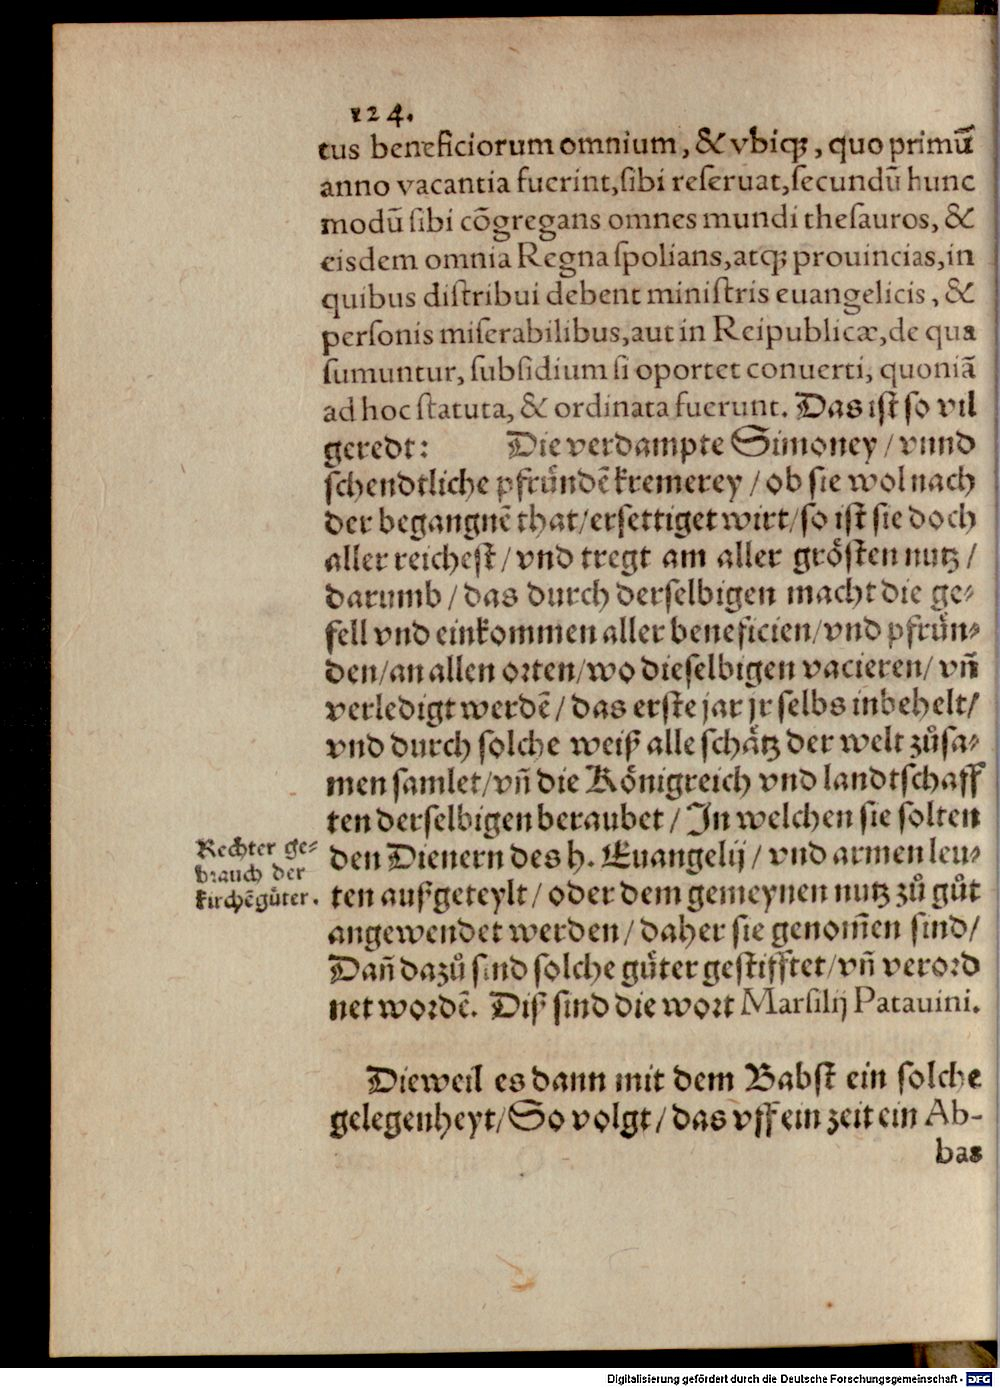 124.
tus beneficiorum omnium, & vbiq;, quo primū
anno vacantia fuerint, ſibi reſeruat, ſecundū hunc
modū ſibi cōgregans omnes mundi theſauros, &
eisdem omnia Regna ſpolians, atq; prouincias, in
quibus diſtribui debent miniſtris euangelicis, &
perſonis miſerabilibus, aut in Reipublicæ, de qua
ſumuntur, ſubſidium ſi oportet conuerti, quoniā
ad hoc ſtatuta, & ordinata fuerunt. Das iſt ſo vil
geredt: Die verdampte Simoney / vnnd
ſchendtliche pfründē kremerey / ob ſie wol nach
der begangnē that / erſettiget wirt / ſo iſt ſie doch
aller reicheſt / vnd tregt am aller gröſten nutz /
darumb / das durch derſelbigen macht die ge⸗
fell vnd einkommen aller beneficien / vnd pfrün⸗
den / an allen orten / wo dieſelbigen vacieren / vñ
verledigt werdē / das erſte jar jr ſelbs inbehelt /
vnd durch ſolche weiß alle ſchätz der welt zůſa⸗
men ſamlet / vñ die Königreich vnd landtſchaff
ten derſelbigen beraubet / In welchen ſie ſolten
Rechter ge⸗
brauch der
kirchēgüter.
den Dienern des h. Euangelij / vnd armen leu⸗
ten außgeteylt / oder dem gemeynen nutz zů gůt
angewendet werden / daher ſie genom̃en ſind /
Dañ dazů ſind ſolche güter geſtifftet / vñ verord
net wordē. Diß ſind die wort Marſilij Patauini.
Dieweil es dann mit dem Babſt ein ſolche
gelegenheyt / So volgt / das vff ein zeit ein Ab-
bas
Digitalisierung gefördert durch die Deutsche Forschungsgemeinschaft - DFG